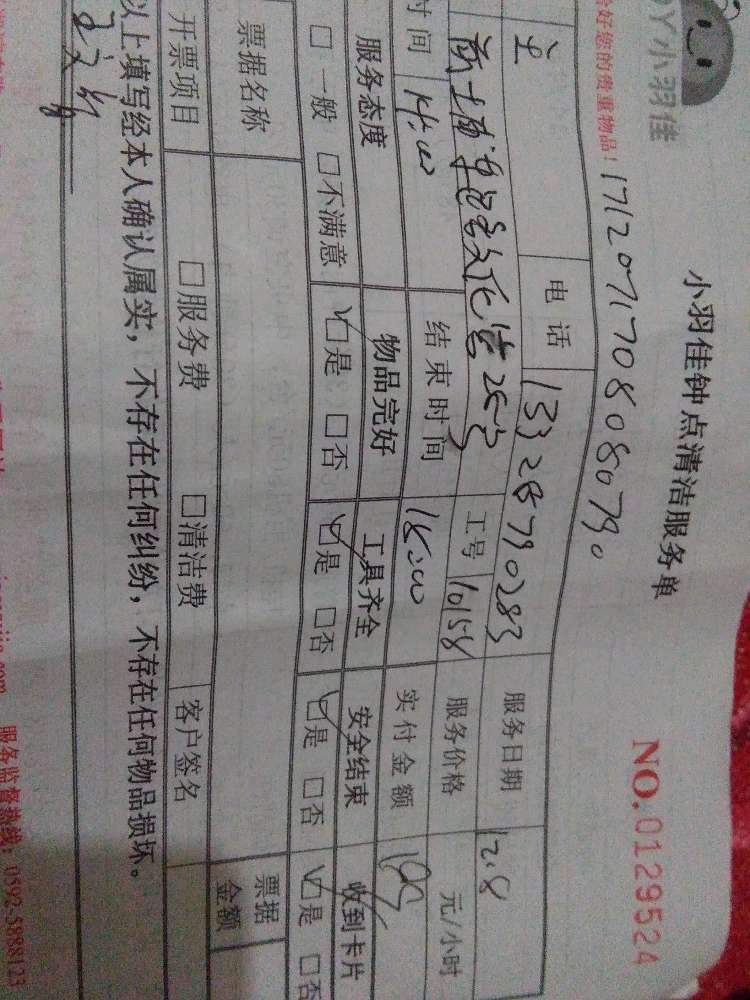 小羽佳
小羽佳钟点清洁服务单
NO.0129524
好您的贵重物品!
1712071708080790
电话 13328790283 服务日期 12.8
工号 10158 服务价格 元/小时
时间 14:00 结束时间 18:00 实付金额
服务态度 物品完好 工具齐全 安全结束 收到卡片
□一般 □不满意 □是 □否 □是 □否 □是 □否 □是 □否
票据名称 票据金额
开票项目 □服务费 □清洁费 客户签名
以上填写经本人确认属实，不存在任何纠纷，不存在任何物品损坏。
服务监督热线：0592-5888123